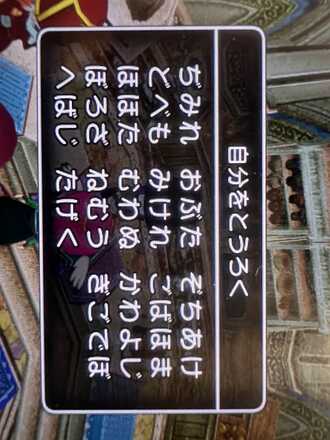 自分をとうろく
ぢみれ おぶた ぞちあけ
とべも みけれ ごばほま
ほほた むわぬ かわよじ
ぼろざ ねむう ぎこでぼ
へばじ たげく